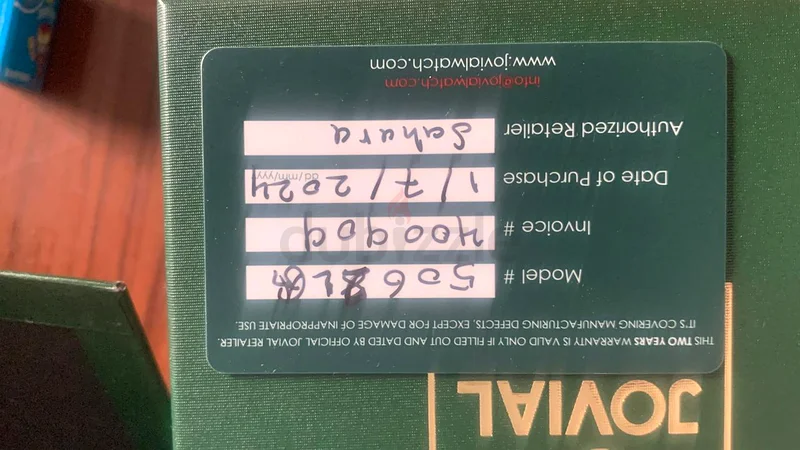 JOVIAL
THIS TWO YEARS WARRANTY IS VALID IF ONLY FILLED OUT AND DATED BY OFFICIAL JOVIAL RETAILER.
IT'S COVERING MANUFACTURING DEFECTS, EXCEPT FOR DAMAGE OF INAPPROPRIATE USE.
Model #
Invoice # 400909
Date of Purchase 1/7/2024 dd/mm/yyy
Authorized Retailer Sahara
info@jovialwatch.com
www.jovialwatch.com
dubizzle